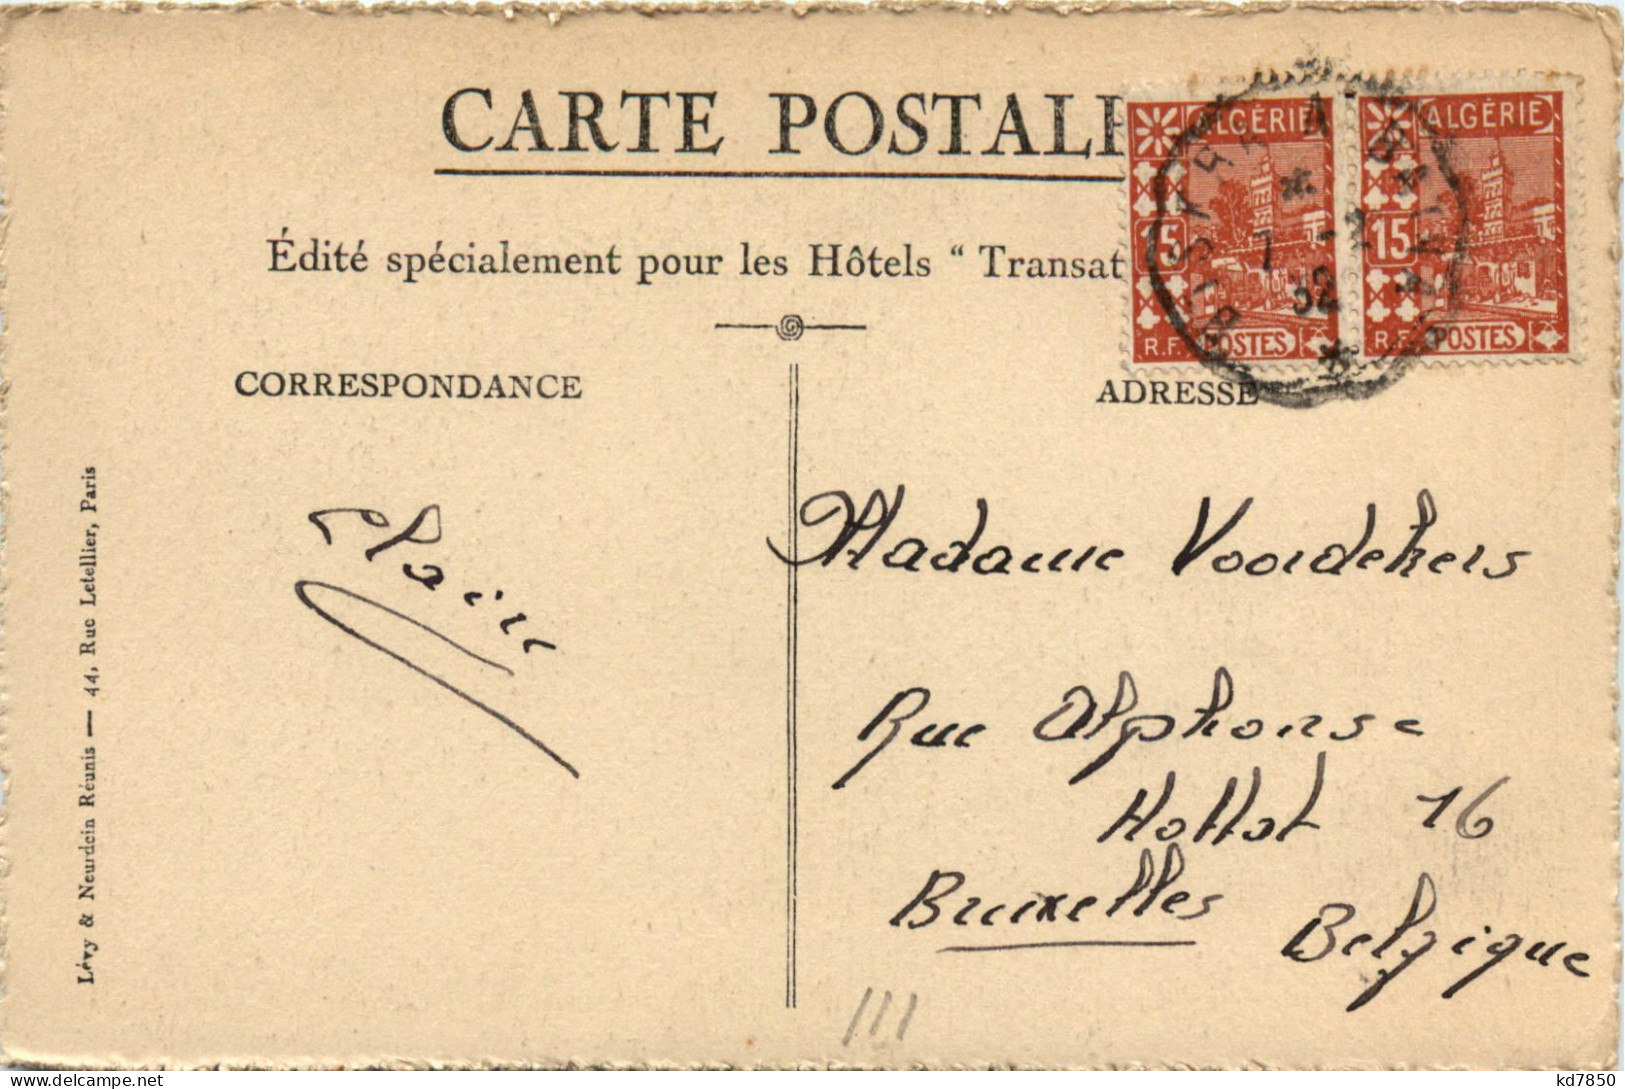 CARTE POSTALE
Édité spécialement pour les Hôtels " Transat
ALGÉRIE
15
R.F. POSTES
ALGÉRIE
15
R.F. POSTES
BOU SAADA
7 -2
32
CORRESPONDANCE
ADRESSE
Lévy & Neurdein Réunis — 44, Rue Letellier, Paris
Claire
Madame Voordekers
Rue Alphonse
Hottat 16
Bruxelles
Belgique
kd7850